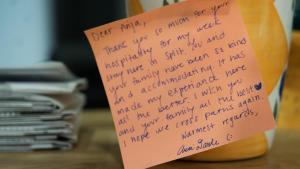 Dear Anja,
Thank you so much for your
hospitality for my week
stay here in Split. You and
your family have been so kind
and accommodating, it has
made my experience here
all the better. I wish you
and your family all the best
I hope we cross paths again.
Warmest regards,